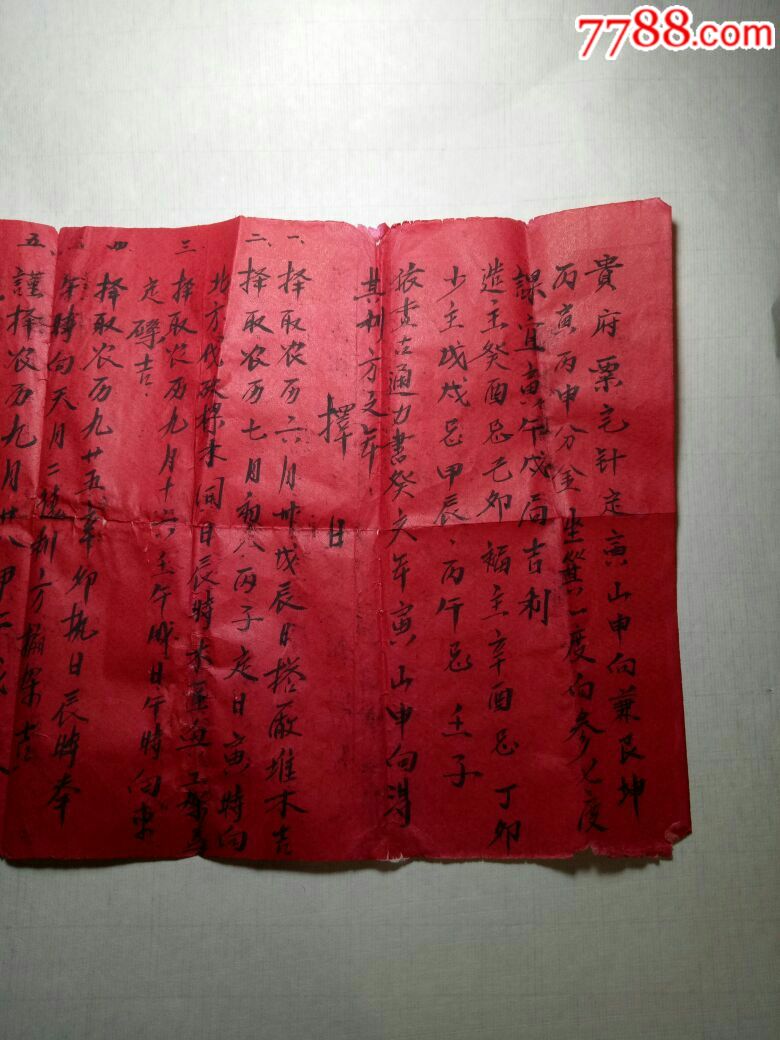 7788.com
貴府票定针定寅山申向兼艮坤
丙寅丙申分金坐箕一度向参七度
課宜寅午戌局吉利
造主癸酉忌乙卯 福主辛酉忌丁卯
少主戊戌忌甲辰、丙午忌壬子
依查古通力書癸亥年寅山申向得
其利方之年
擇日
一、择取农历六月廿戊辰日搭廠堆木吉
二、择取农历七月初八丙子定日寅時向
北方伐砍樑木同日辰時木匠兴工架馬
三、择取农历九月十六壬午成日午時向東
定磉吉.
四、择取农历九廿五辛卯执日辰時奉
年時向天月二德利方
五、謹择农历九月廿八甲